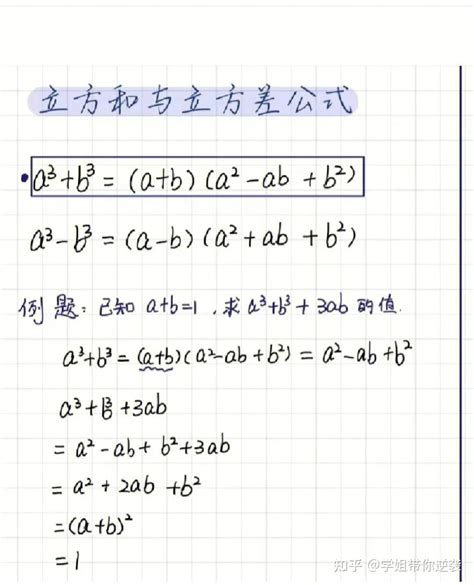 立方和与立方差公式
•a³+b³=(a+b)(a²-ab+b²)
a³-b³=(a-b)(a²+ab+b²)
例题:已知a+b=1,求a³+b³+3ab的值.
a³+b³=(a+b)(a²-ab+b²)=a²-ab+b²
a³+b³+3ab
=a²-ab+b²+3ab
=a²+2ab+b²
=(a+b)²
=1
知乎 @学姐带你逆袭